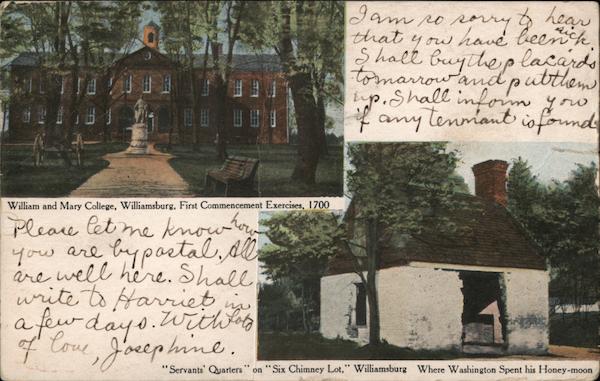 I am so sorry to hear
that you have been sick.
Shall buy the placards
tomorrow and put them
up. Shall inform you
if any tennant is found.
William and Mary College, Williamsburg, First Commencement Exercises, 1700
Please let me know how
you are by postal. All
are well here. Shall
write to Harriet in
a few days. With lots
of love, Josephine.
"Servants' Quarters" on "Six Chimney Lot," Williamsburg Where Washington Spent his Honey-moon